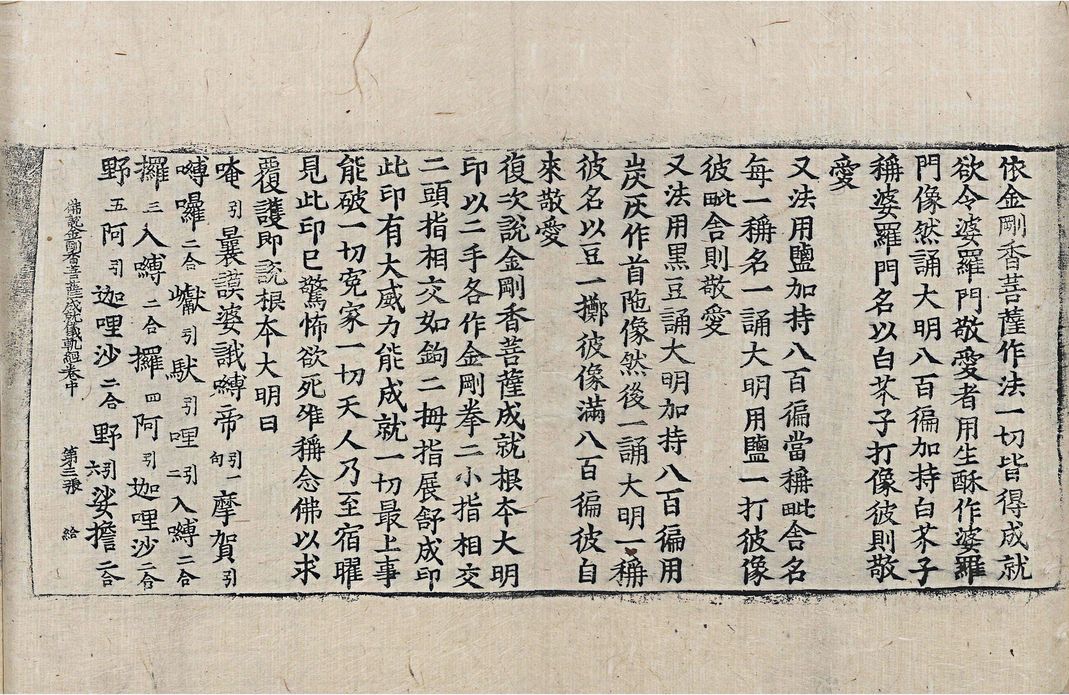 依金剛香菩薩作法一切皆得成就
欲令婆羅門敬愛者用生酥作婆羅
門像然誦大明八百徧加持白芥子
稱婆羅門名以白芥子打像彼則敬
愛
又法用鹽加持八百徧當稱毗舍名
每一稱名一誦大明用鹽一打彼像
彼毗舍則敬愛
又法用黑豆誦大明加持八百徧用
炭灰作首陁像然後一誦大明一稱
彼名以豆一擲彼像滿八百徧彼自
來敬愛
復次說金剛香菩薩成就根本大明
印以二手各作金剛拳二小指相交
二頭指相交如鉤二拇指展舒成印
此印有大威力能成就一切最上事
能破一切寃家一切天人乃至宿曜
見此印已驚怖欲死唯稱念佛以求
覆護即說根本大明曰
唵引曩謨婆誐嚩帝引一句摩賀引
嚩囉二合巘引馱引哩引二入嚩二合
攞三入嚩二合攞四阿引迦哩沙二合
野五阿引迦哩沙二合野引六娑擔二合
佛說金剛香菩薩成就儀軌經卷中 第三張 給